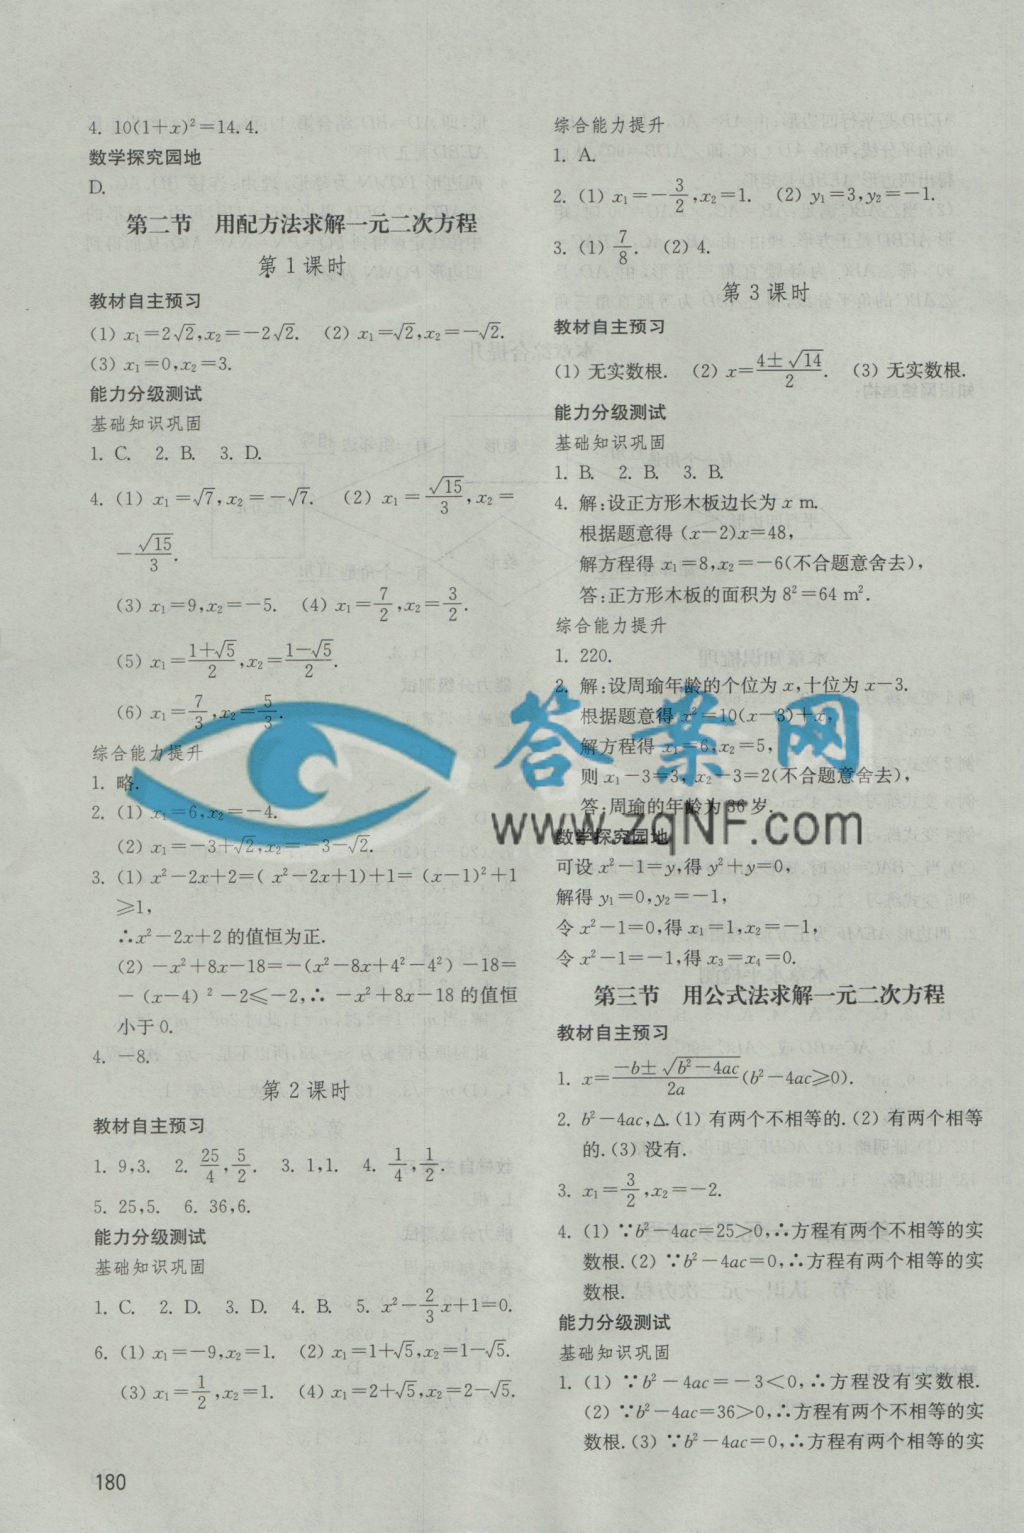 4. 10(1+x)²=14.4.
数学探究园地
D.
第二节 用配方法求解一元二次方程
第1课时
教材自主预习
(1) x₁=2√2,x₂=-2√2. (2) x₁=√2,x₂=-√2.
(3) x₁=0,x₂=3.
能力分级测试
基础知识巩固
1. C. 2. B. 3. D.
4. (1) x₁=√7,x₂=-√7. (2) x₁=√15/3,x₂=
-√15/3.
(3) x₁=9,x₂=-5. (4) x₁=7/2,x₂=3/2.
(5) x₁=(1+√5)/2,x₂=(1-√5)/2.
(6) x₁=7/3,x₂=5/3.
综合能力提升
1. 略.
2. (1) x₁=6,x₂=-4.
(2) x₁=-3+√2,x₂=-3-√2.
3. (1) x²-2x+2=( x²-2x+1)+1= (x-1)²+1
≥1,
∴x²-2x+2 的值恒为正.
(2) -x²+8x-18=-(x²-8x+4²-4²) -18=
-(x-4)²-2≤-2,∴ -x²+8x-18 的值恒
小于0.
4. -8.
第2课时
教材自主预习
1. 9,3. 2. 25/4,5/2. 3. 1,1. 4. 1/4,1/2.
5. 25,5. 6. 36,6.
能力分级测试
基础知识巩固
1. C. 2. D. 3. D. 4. B. 5. x²-2/3x+1=0.
6. (1) x₁=-9,x₂=1. (2) x₁=1+√5,x₂=1-√5.
(3) x₁=1/2,x₂=1. (4) x₁=2+√5,x₂=2-√5.
180
综合能力提升
1. A.
2. (1) x₁=-3/2,x₂=1. (2) y₁=3,y₂=-1.
3. (1) 7/8. (2) 4.
第3课时
教材自主预习
(1) 无实数根. (2) x=(4±√14)/2. (3) 无实数根.
能力分级测试
基础知识巩固
1. B. 2. B. 3. B.
4. 解:设正方形木板边长为 x m.
根据题意得 (x-2)x=48,
解方程得 x₁=8,x₂=-6(不合题意舍去),
答:正方形木板的面积为 8²=64 m².
综合能力提升
1. 220.
2. 解:设周瑜年龄的个位为 x,十位为 x-3.
根据题意得 x²=10(x-3)+x,
解方程得 x₁=6,x₂=5,
则 x₁-3=3, x₂-3=2(不合题意舍去),
答:周瑜的年龄为 36 岁.
数学探究园地
可设 x²-1=y,得 y²+y=0,
解得 y₁=0,y₂=-1,
令 x²-1=0,得 x₁=1,x₂=-1,
令 x²-1=-1,得 x₃=x₄=0.
第三节 用公式法求解一元二次方程
教材自主预习
1. x=(-b±√(b²-4ac))/2a(b²-4ac≥0).
2. b²-4ac,Δ. (1) 有两个不相等的. (2) 有两个相等
的. (3) 没有.
3. x₁=3/2,x₂=-2.
4. (1) ∵b²-4ac=25>0,∴方程有两个不相等的实
数根. (2) ∵b²-4ac=0,∴方程有两个相等的实
数根.
能力分级测试
基础知识巩固
1. (1) ∵b²-4ac=-3<0,∴方程没有实数根.
(2) ∵b²-4ac=36>0,∴方程有两个不相等的实
数根. (3) ∵b²-4ac=0,∴方程有两个相等的实
答案网
www.zqNF.com